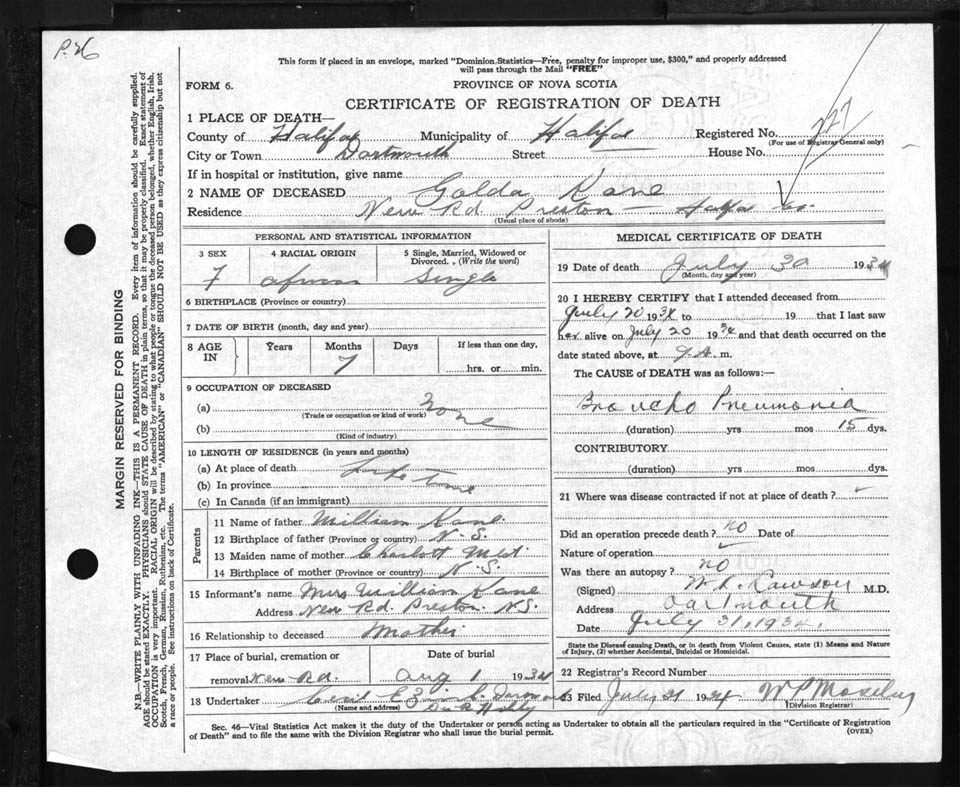 P.26
This form if placed in an envelope, marked "Dominion Statistics—Free, penalty for improper use, $300," and properly addressed
will pass through the Mail "FREE"
FORM 6.
PROVINCE OF NOVA SCOTIA
CERTIFICATE OF REGISTRATION OF DEATH
1 PLACE OF DEATH—
County of Halifax Municipality of Halifax Registered No. 227
(For use of Registrar General only)
City or Town Dartmouth Street House No.
If in hospital or institution, give name
2 NAME OF DECEASED Golda Kane
Residence New Rd. Preston — Halifax Co.
(Usual place of abode)
PERSONAL AND STATISTICAL INFORMATION
3 SEX 4 RACIAL ORIGIN 5 Single, Married, Widowed or
Divorced. (Write the word)
F Single
6 BIRTHPLACE (Province or country)
7 DATE OF BIRTH (month, day and year)
8 AGE IN Years Months Days If less than one day,
7 hrs. or min.
9 OCCUPATION OF DECEASED
(a) None
(Trade or occupation or kind of work)
(b)
(Kind of industry)
10 LENGTH OF RESIDENCE (in years and months)
(a) At place of death life time
(b) In province
(c) In Canada (if an immigrant)
Parents
11 Name of father William Kane
12 Birthplace of father (Province or country) N.S.
13 Maiden name of mother Charlott
14 Birthplace of mother (Province or country) N.S.
15 Informant's name Mrs William Kane
Address New Rd. Preston. N.S.
16 Relationship to deceased Mother
17 Place of burial, cremation or Date of burial
removal New Rd. Aug 1 1934
18 Undertaker
(Name and address)
MEDICAL CERTIFICATE OF DEATH
19 Date of death July 30 1934
(Month, day and year)
20 I HEREBY CERTIFY that I attended deceased from
July 20 1934 to 19 that I last saw
her alive on July 20 1934 and that death occurred on the
date stated above, at 9 A. m.
The CAUSE of DEATH was as follows:—
Broncho Pneumonia
(duration) yrs mos 15 dys.
CONTRIBUTORY
(duration) yrs mos dys.
21 Where was disease contracted if not at place of death?
Did an operation precede death? no Date of
Nature of operation
Was there an autopsy? no
(Signed) Rawson M.D.
Address Dartmouth
Date July 31, 1934.
State the Disease causing Death, or in death from Violent Causes, state (1) Means and Nature
of Injury, (2) whether Accidental, Suicidal or Homicidal.
22 Registrar's Record Number
23 Filed July 31 1934 W P Moseley
(Division Registrar)
Sec. 46—Vital Statistics Act makes it the duty of the Undertaker or person acting as Undertaker to obtain all the particulars required in the "Certificate of Registration
of Death" and to file the same with the Division Registrar who shall issue the burial permit. (OVER)
MARGIN RESERVED FOR BINDING
N.B.—WRITE PLAINLY WITH UNFADING INK—THIS IS A PERMANENT RECORD. Every item of information should be carefully supplied.
AGE should be stated EXACTLY. PHYSICIANS should STATE CAUSE OF DEATH in plain terms, so that it may be properly classified. Exact statement of
OCCUPATION is very important. RACIAL ORIGIN will be described by stating to what people or tongue the deceased person belonged, whether English, Irish,
Scotch, French, German, Russian, Ruthenian, etc. The terms "AMERICAN" or "CANADIAN" SHOULD NOT BE USED as they express citizenship but not
a race or people. See instructions on back of Certificate.